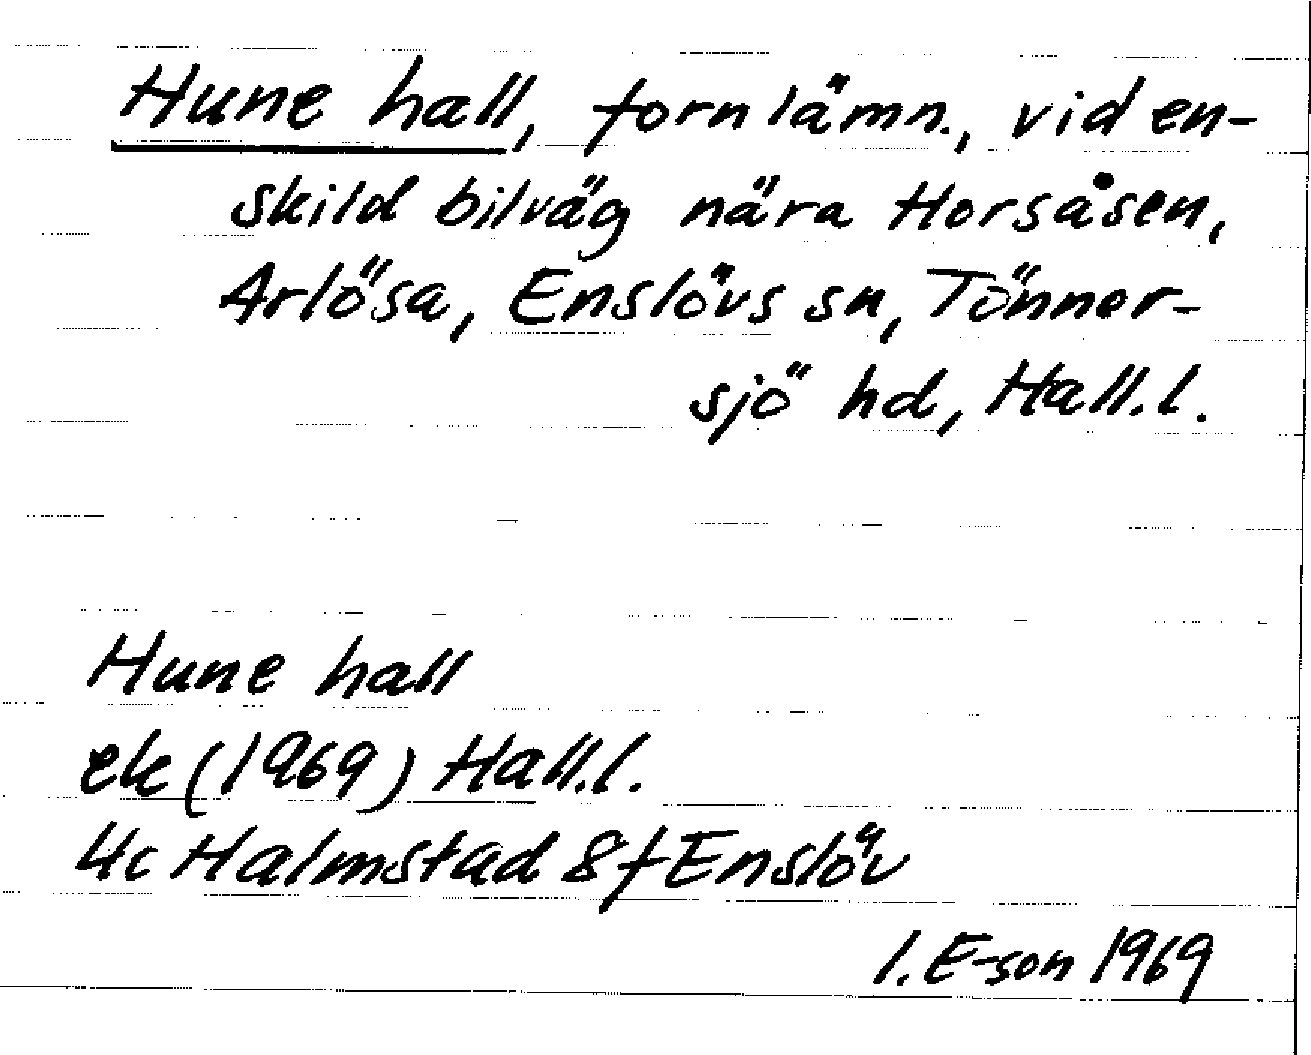 Hune hall, fornlämn., vid en-
skild bilväg nära Horsåsen,
Arlösa, Enslövs sn, Tönner-
sjö hd, Hall.l.
Hune hall
ek (1969) Hall.l.
4c Halmstad 8f Enslöv
I. E-son 1969